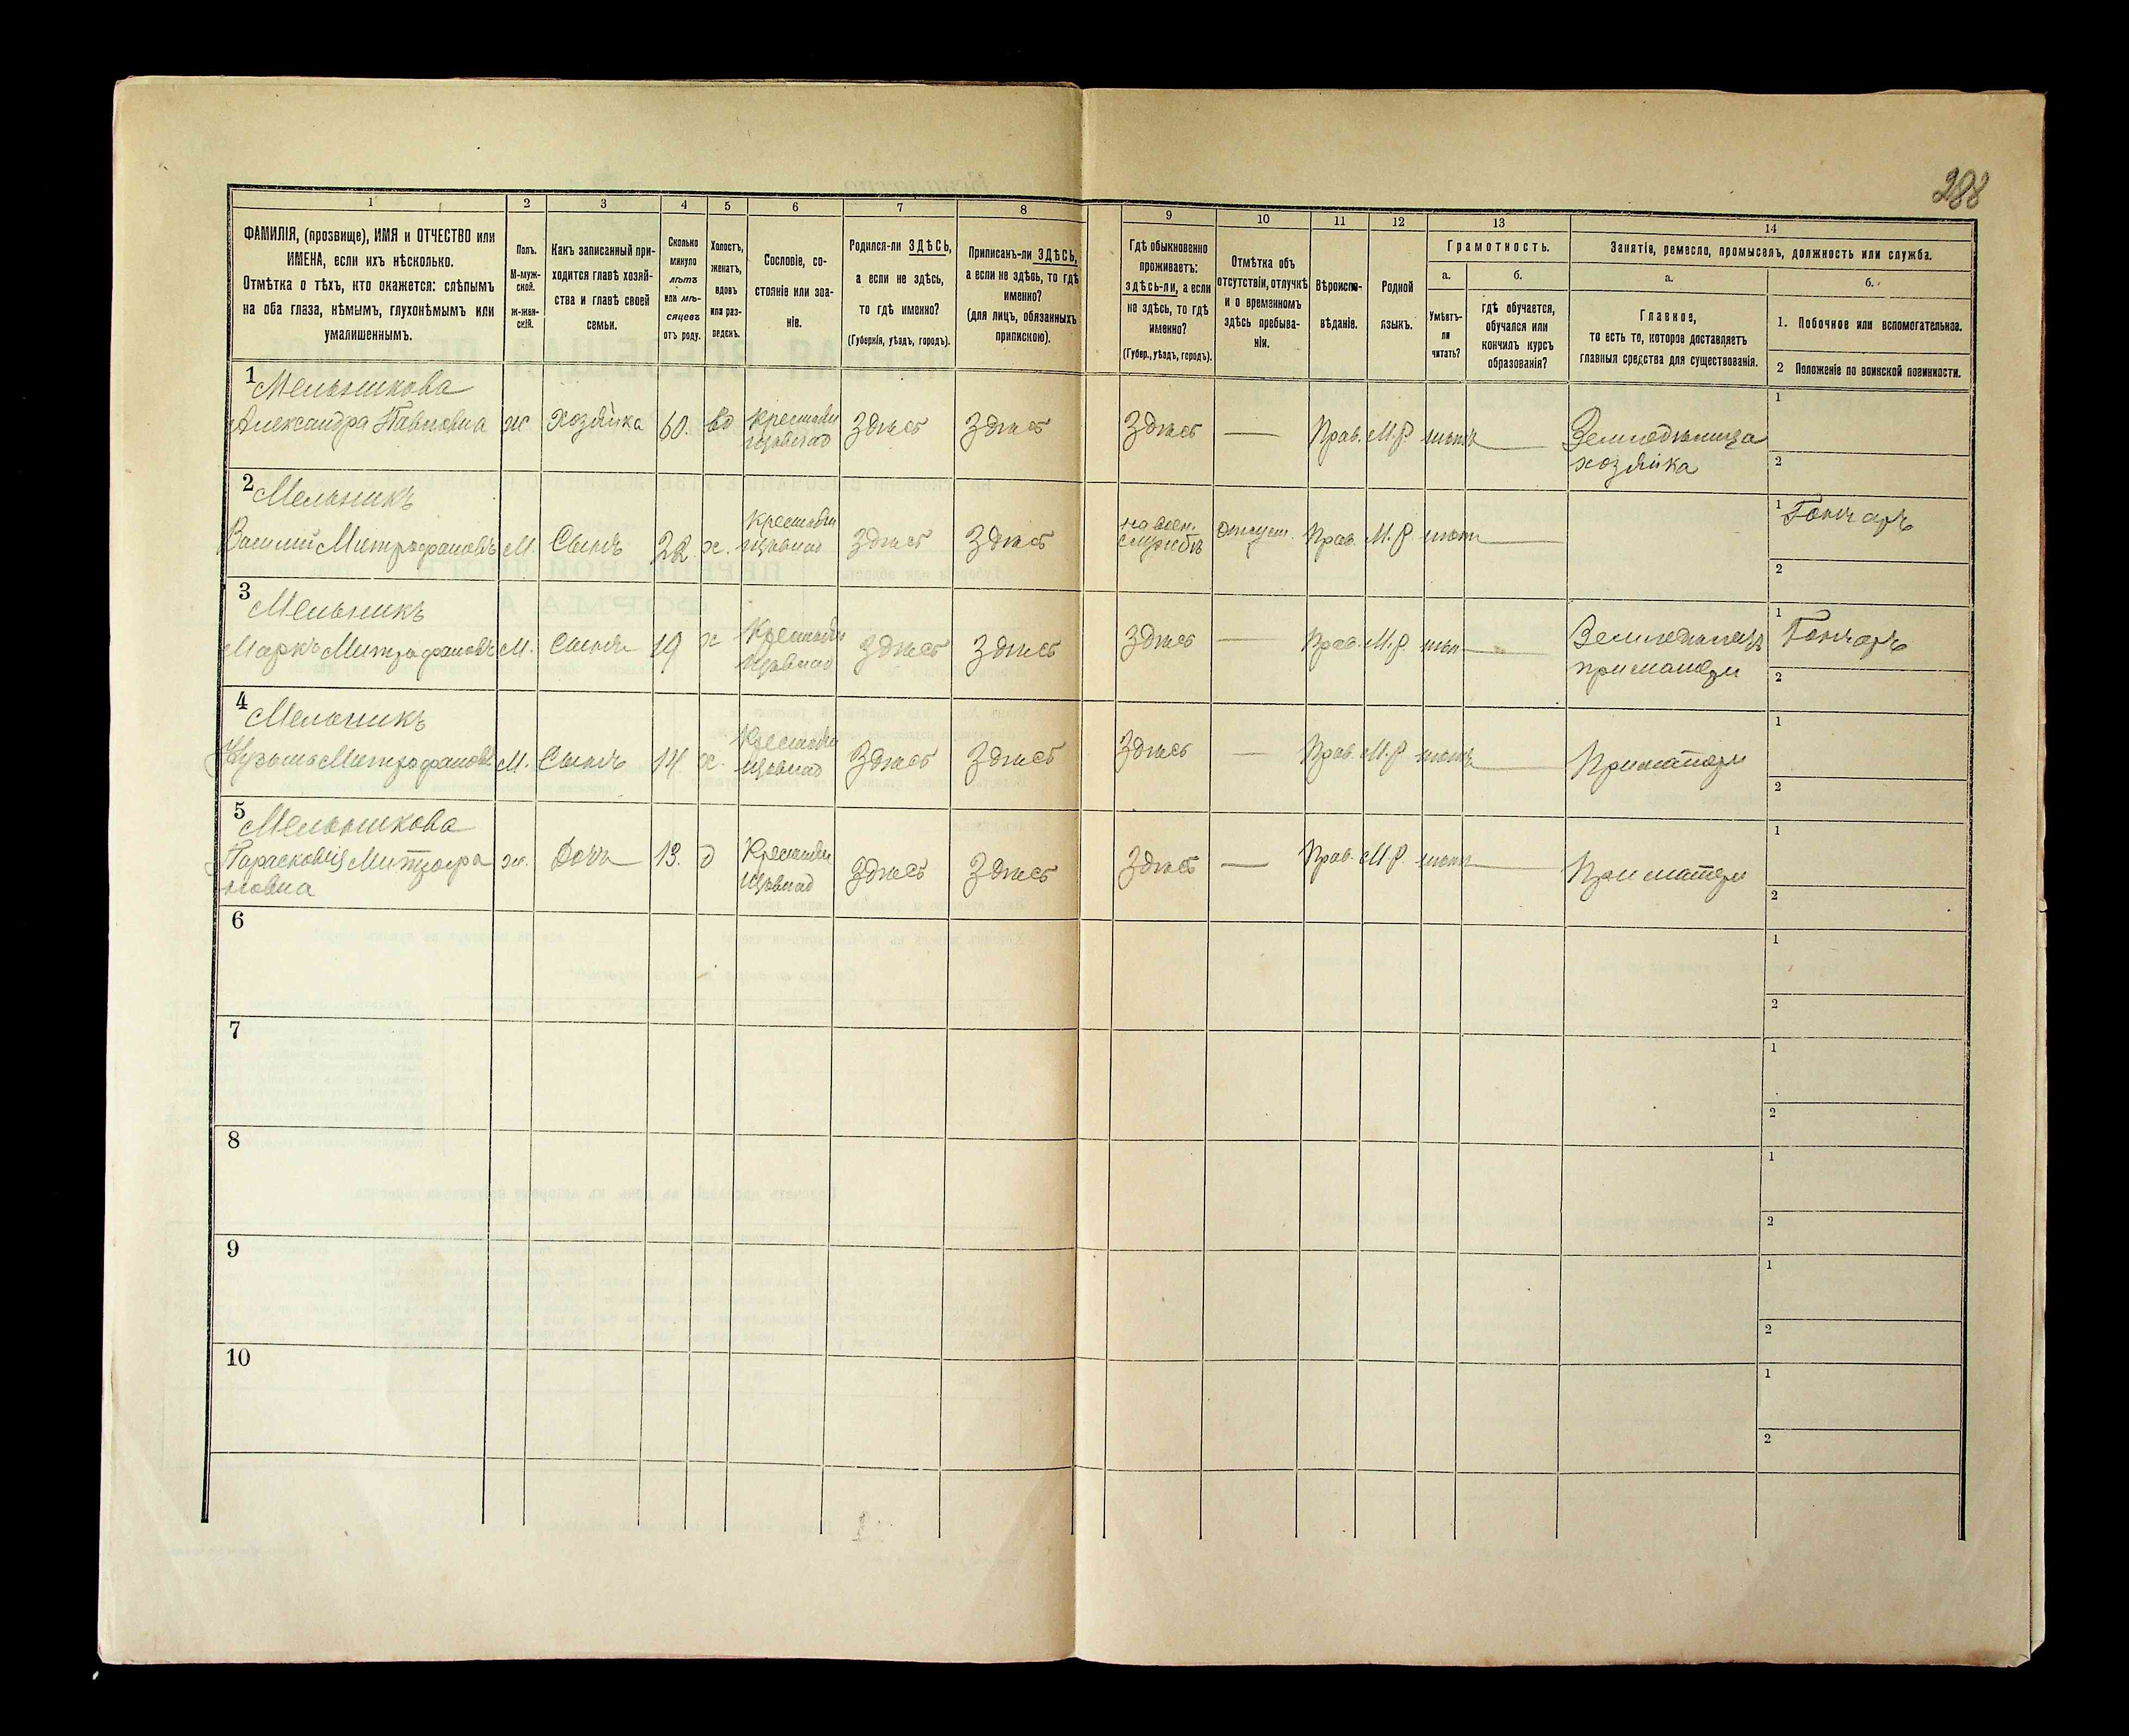 288
1
2
3
4
5
6
7
8
9
10
11
12
13
14
ФАМИЛІЯ, (прозвище), ИМЯ и ОТЧЕСТВО или
ИМЕНА, если ихъ нѣсколько.
Отмѣтка о тѣхъ, кто окажется: слѣпымъ
на оба глаза, нѣмымъ, глухонѣмымъ или
умалишеннымъ.
Полъ.
М-муж-
ской.
ж-жен-
скій.
Какъ записанный при-
ходится главѣ хозяй-
ства и главѣ своей
семьи.
Сколько
минуло
лѣтъ
или мѣ-
сяцевъ
отъ роду.
Холостъ,
женатъ,
вдовъ
или раз-
ведсиъ.
Сословіе, со-
стояніе или зва-
ніе.
Родился-ли ЗДѢСЬ,
а если не здѣсь,
то гдѣ именно?
(Губернія, уѣздъ, городъ).
Приписанъ-ли ЗДѢСЬ,
а если не здѣсь, то гдѣ
именно?
(для лицъ, обязанныхъ
припискою).
Гдѣ обыкновенно
проживаетъ:
здѣсь-ли, а если
не здѣсь, то гдѣ
именно?
(Губер., уѣздъ, городъ).
Отмѣтка объ
отсутствіи, отлучкѣ
и о временномъ
здѣсь пребыва-
ніи.
Вѣроиспо-
вѣданіе.
Родной
языкъ.
Грамотность.
а.
Умѣетъ-
ли
читать?
б.
гдѣ обучается,
обучался или
кончилъ курсъ
образованія?
Занятіе, ремесло, промыселъ, должность или служба.
а.
Главное,
то есть то, которое доставляетъ
главныя средства для существованія.
б.
1. Побочное или вспомогательное.
2 Положеніе по воинской повинности.
1 Мельникова
Александра Павловна ж Хозяйка 60. вд Здѣсь Здѣсь Здѣсь — Прав. М.Р. — Земледѣлица
хозяйка
1
2
2 Мельникъ
Василий Митрофановъ М. Сынъ 22 х. Здѣсь Здѣсь на воен.
службѣ Прав. М.Р. —
1 Гончаръ
2
3 Мельникъ
Маркъ Митрофановъ М. Сынъ 19 х Здѣсь Здѣсь Здѣсь — Прав. М.Р. — Земледѣлецъ
при матери
1 Гончаръ
2
4 Мельникъ
Кузьма Митрофановъ М. Сынъ 14. х. Здѣсь Здѣсь Здѣсь — Прав. М.Р. — При матери
1
2
5 Мельникова
Парасковія Митрофа
новна ж. Дочь 13. д Здѣсь Здѣсь Здѣсь — Прав. М.Р. — При матери
1
2
6
1
2
7
1
2
8
1
2
9
1
2
10
1
2